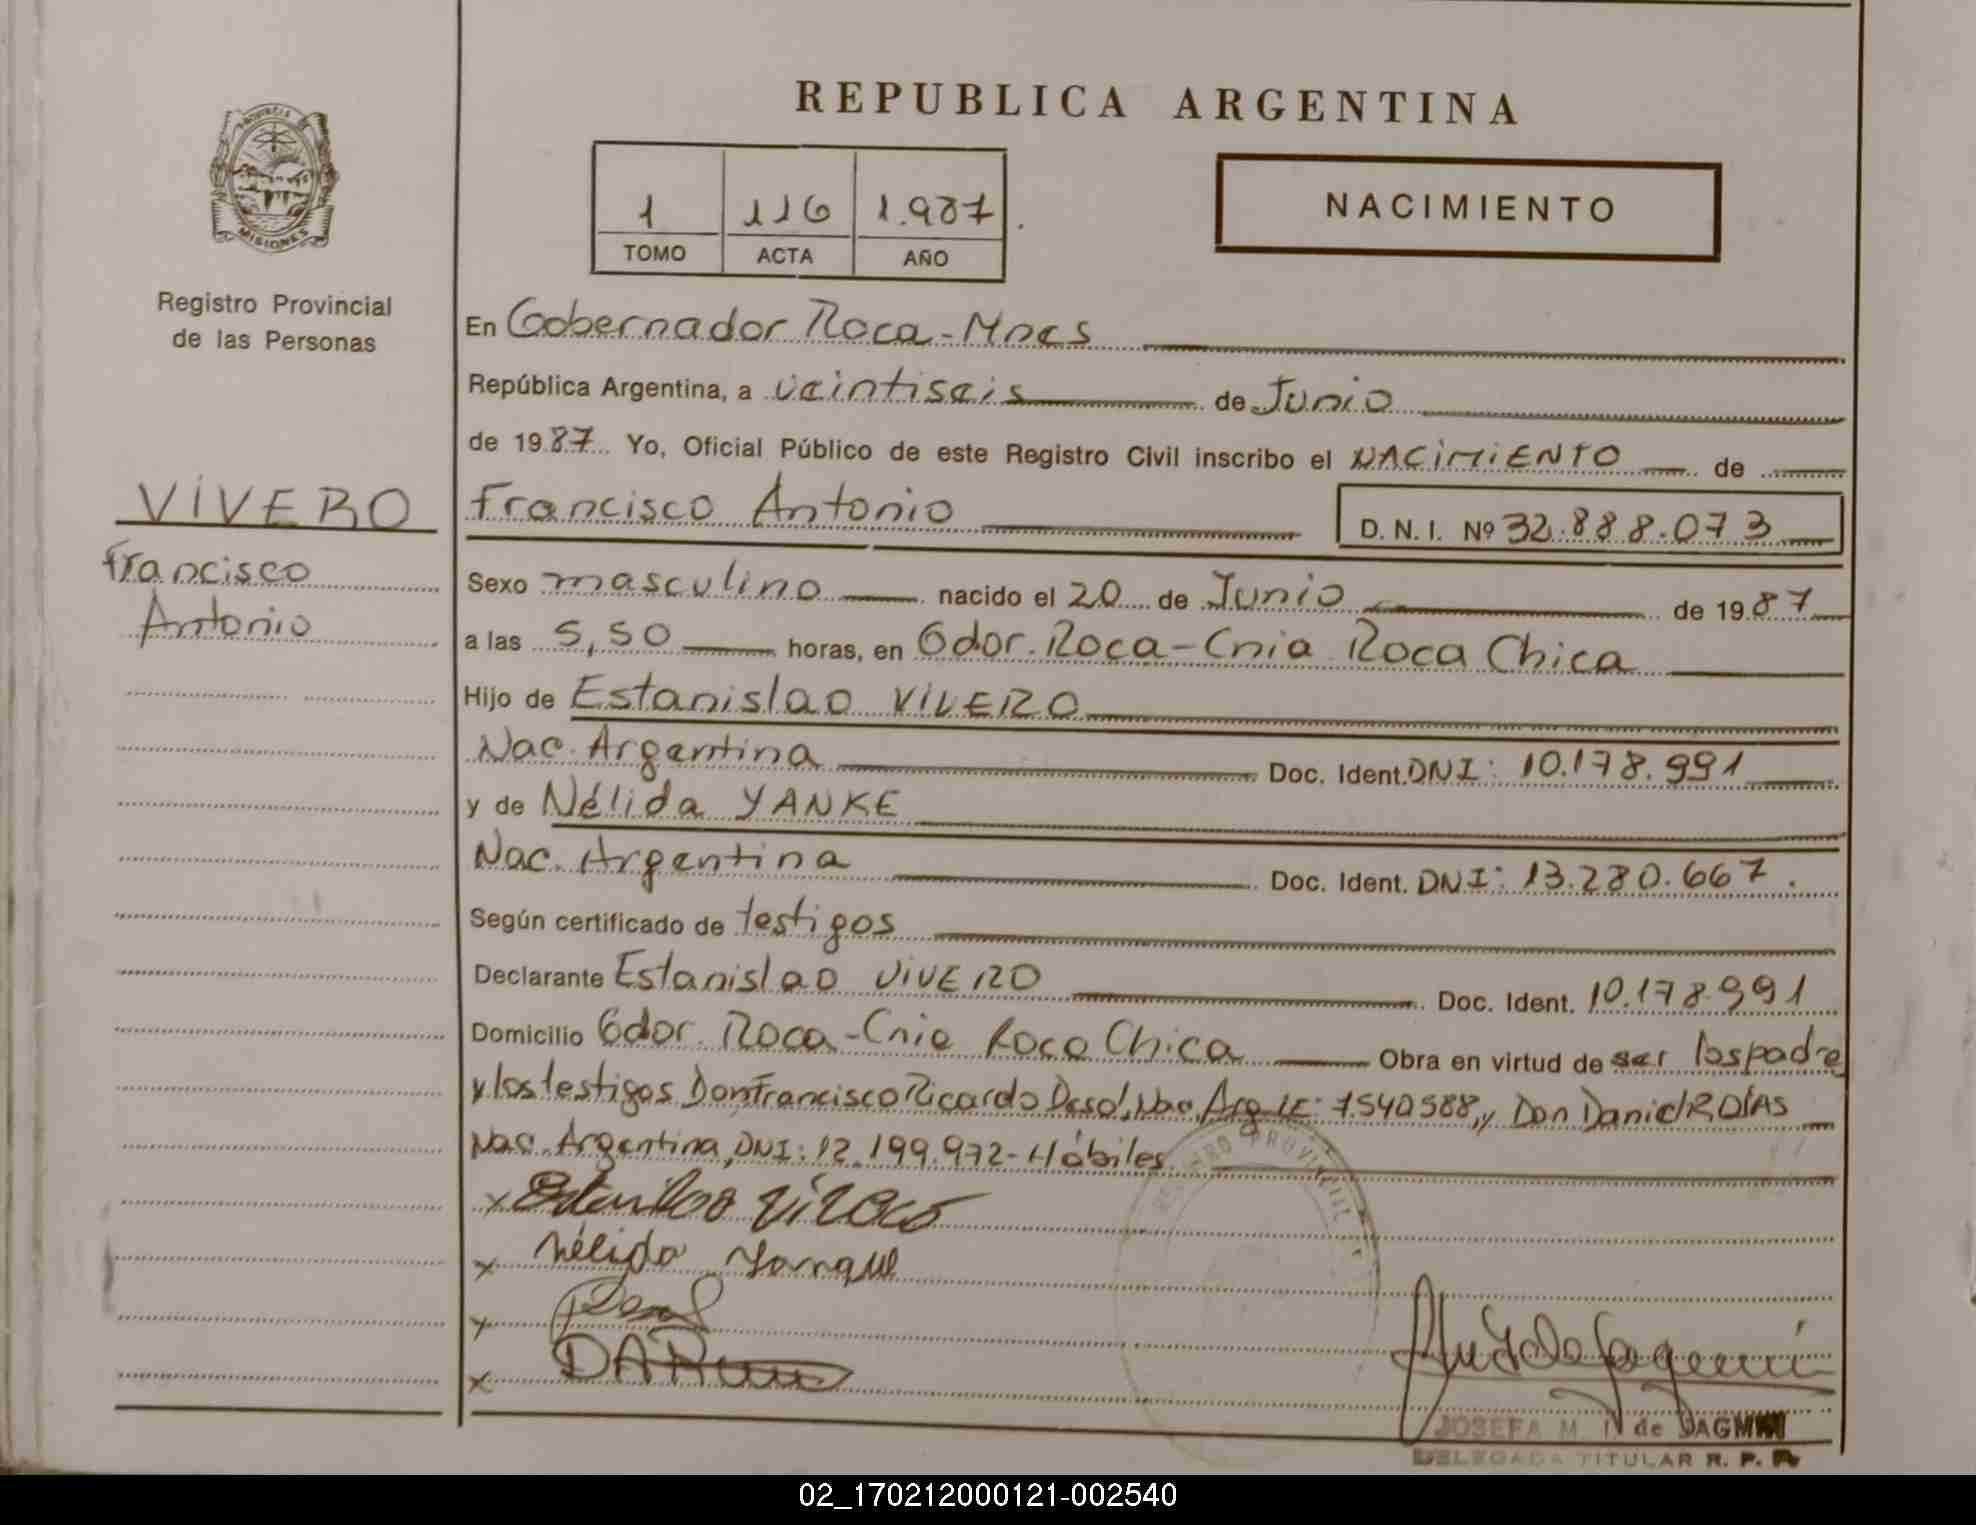 REPUBLICA ARGENTINA
PROVINCIA DE
MISIONES
1 116 1.987
TOMO ACTA AÑO
NACIMIENTO
Registro Provincial
de las Personas
VIVERO
Francisco
Antonio
En Gobernador Roca-Mnes
República Argentina, a veintiseis de Junio
de 1987 Yo, Oficial Público de este Registro Civil inscribo el NACIMIENTO de
Francisco Antonio D. N. I. Nº 32.888.073
Sexo masculino nacido el 20 de Junio de 1987
a las 5,50 horas, en Gdor. Roca-Cnia Roca Chica
Hijo de Estanislao VIVERO
Nac. Argentina Doc. Ident. DNI: 10.178.991
y de Nélida YANKE
Nac. Argentina Doc. Ident. DNI: 13.280.667.
Según certificado de testigos
Declarante Estanislao VIVERO Doc. Ident. 10.178.991
Domicilio Gdor. Roca-Cnia Roca Chica Obra en virtud de ser los padre
y los testigos Don Francisco Ricardo Nac. Arg. LE: 7.540588, y Don Daniel R DIAS
Nac. Argentina, DNI: 12.199.972-Hábiles
x Estanislao Vivero
x Nélida Yanque
x
x
REGISTRO PROVINCIAL
JOSEFA M. de
DELEGADA TITULAR R. P. P.
02_170212000121-002540